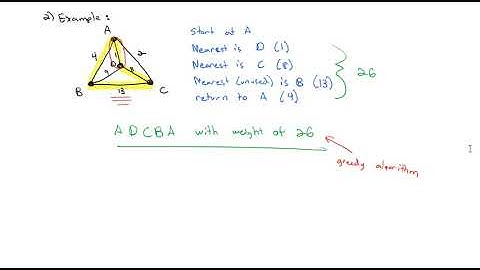 2) Example :
A
4
1
2
D
9
8
B
13
C
start at A
Nearest is D (1)
Nearest is C (8)
Nearest (unused) is B (13)
return to A (4)
26
A D C B A with weight of 26
greedy algorithm